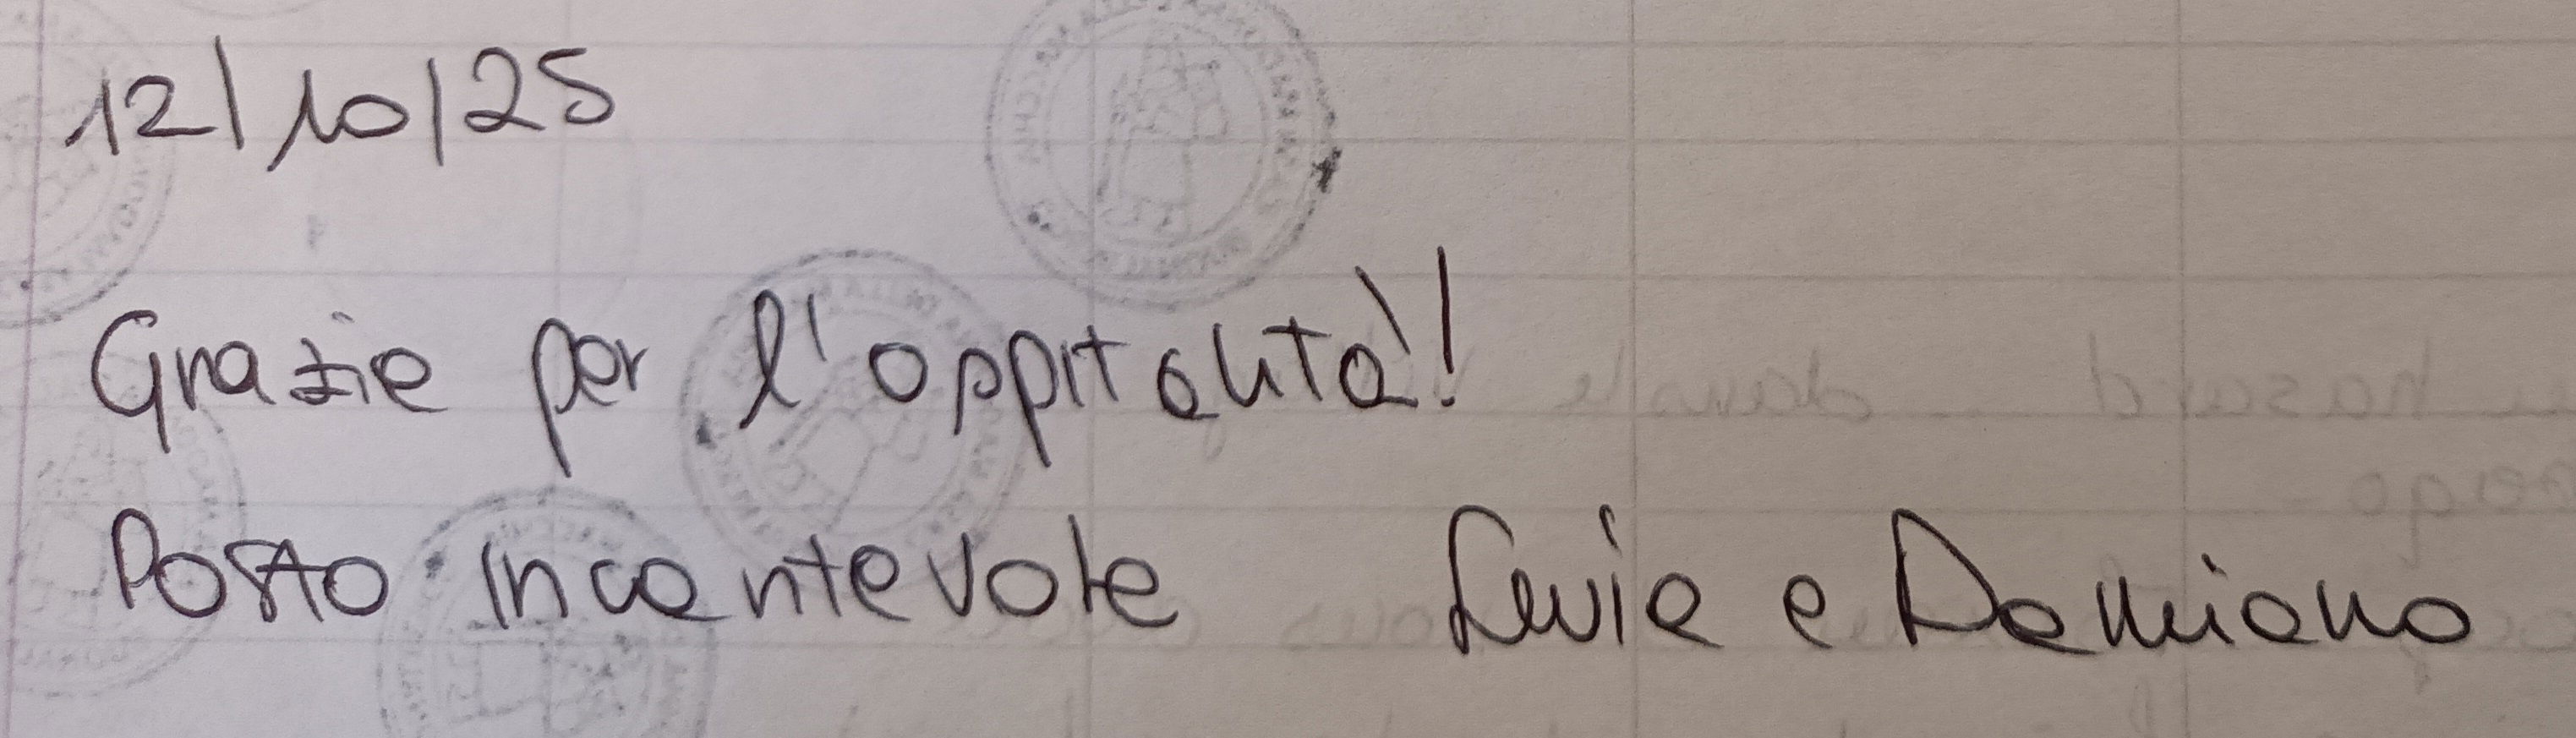 12/10/25
Grazie per l'oppitalità!
Posto incantevole e Damiano